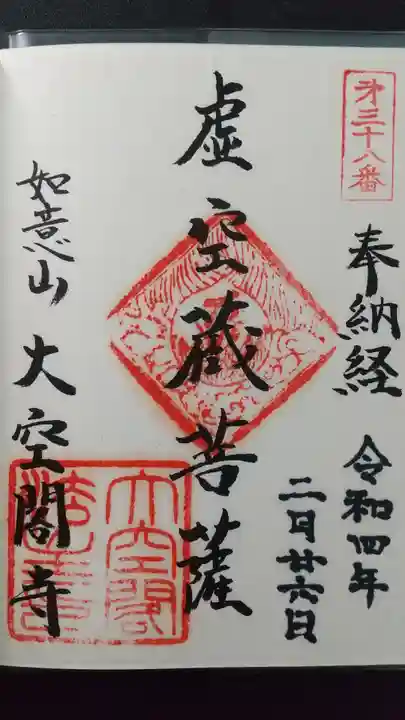 第三十八番
奉納経
令和四年
二月廿六日
虚空蔵菩薩
如意山 大空閣寺